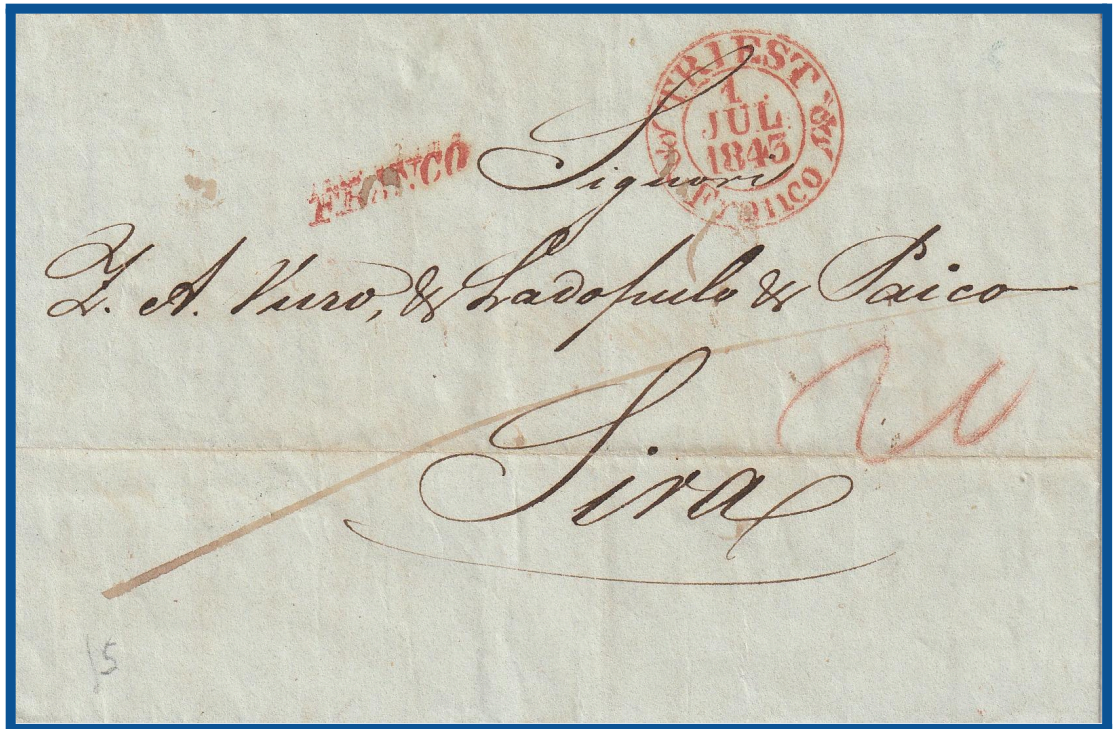 TRIEST
1
JUL
1843
Franco
FRANCO
Signori
Z. A. Vuro, & Ladopulo & Paico
Sira
20
15